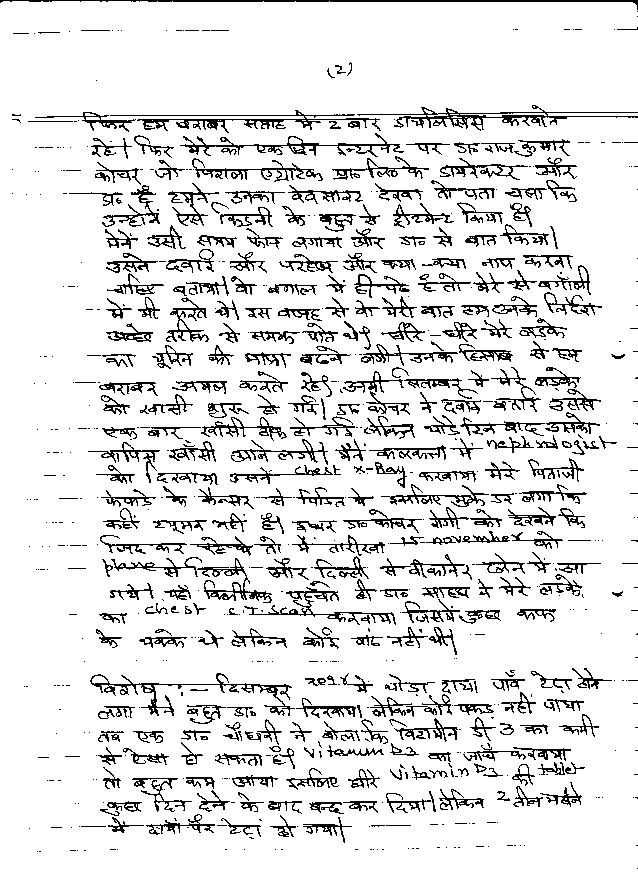 (2)
फिर हम बराबर सप्ताह में 2 बार डायलिसिस करवाते
रहे। फिर मेरे को एक दिन इन्टरनेट पर डा० राज कुमार
कोचर जो निराला एग्रोटेक प्रा० लि० के डायरेक्टर और
डा० है हमने उनका वेवसाइट देखा तो पता चला कि
उन्होंने ऐसे किडनी के बहुत से ट्रीटमेन्ट किया है।
मैंने उसी समय फोन लगाया और डा० से बात किया।
उसने दवाई और परहेज और क्या-क्या नाप करवा
चाहिए बताया। वो बंगाल में ही है तो मेरे से बंगाली
में भी करते थे। इस वजह से वो मेरी बात हम उनके निर्देश
तरीके से समझ पाते थे। धीरे-धीरे मेरे लड़के
का यूरिन की मात्रा बढ़ने लगी। उनके हिसाब से हम
बराबर अमल करते रहे। सितम्बर में मेरे लड़के
को खांसी शुरू हो गई। डा० कोचर ने दवाई बताई उससे
एक बार खाँसी ठीक हो गई लेकिन थोड़े दिन बाद उसको
वापिस खाँसी आने लगी। मैंने कोलकाता में nephrologist
को दिखाया उसने chest x-Ray करवाया मेरे पिताजी
फेफड़े के कैन्सर से पिड़ित थे इसलिए मुझे डर लगा कि
कहीं ट्यूमर नहीं है। इधर डा० कोचर रोगी को देखने कि
जिद कर रहे थे तो में तारीख 15 november को
plane से दिल्ली और दिल्ली से बीकानेर ट्रेन में आ
गये। यहाँ क्लिनिक पहुँचते ही डा० साहब ने मेरे लड़के
का chest C.T. scan करवाया जिसमें कुछ कफ
के थक्के थे लेकिन कोई गांठ नहीं थी।
विशेष :- दिसम्बर 2014 मे थोड़ा दाया पाँव टेढा होने
लगा मैंने बहुत डा० को दिखाया लेकिन कोई पकड़ नहीं पाया
तब एक डा० चौधरी ने बोला कि विटामीन डी 3 का कमी
से ऐसा हो सकता है। Vitamin D3 का जाँच करवाया
तो बहुत कम आया इसलिए धीरे Vitamin D3 की tablet
कुछ दिन देने के बाद बन्द कर दिया। लेकिन 2 तीन महिने
में दायाँ पैर टेढां हो गया।